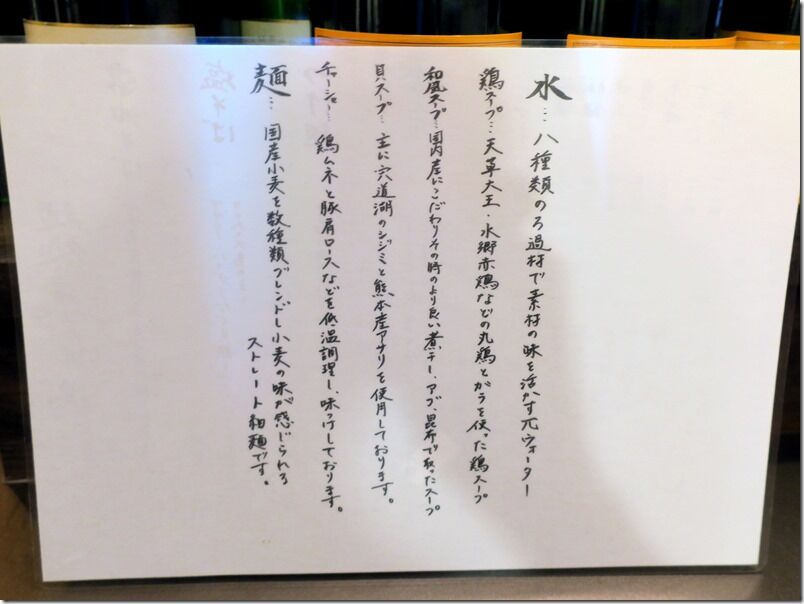 水… 八種類のろ過材で素材の味を活かすπウォーター
鶏スープ… 天草大王・水郷赤鶏などの丸鶏とガラを使った鶏スープ
和風スープ… 国内産にこだわりその時のより良い煮干し、アゴ、昆布で取ったスープ
貝スープ… 主に宍道湖のシジミと熊本産アサリを使用しております。
チャーシュー… 鶏ムネと豚肩ロースなどを低温調理し、味つけしております。
麺… 国産小麦を数種類ブレンドし小麦の味が感じられる
ストレート細麺です。